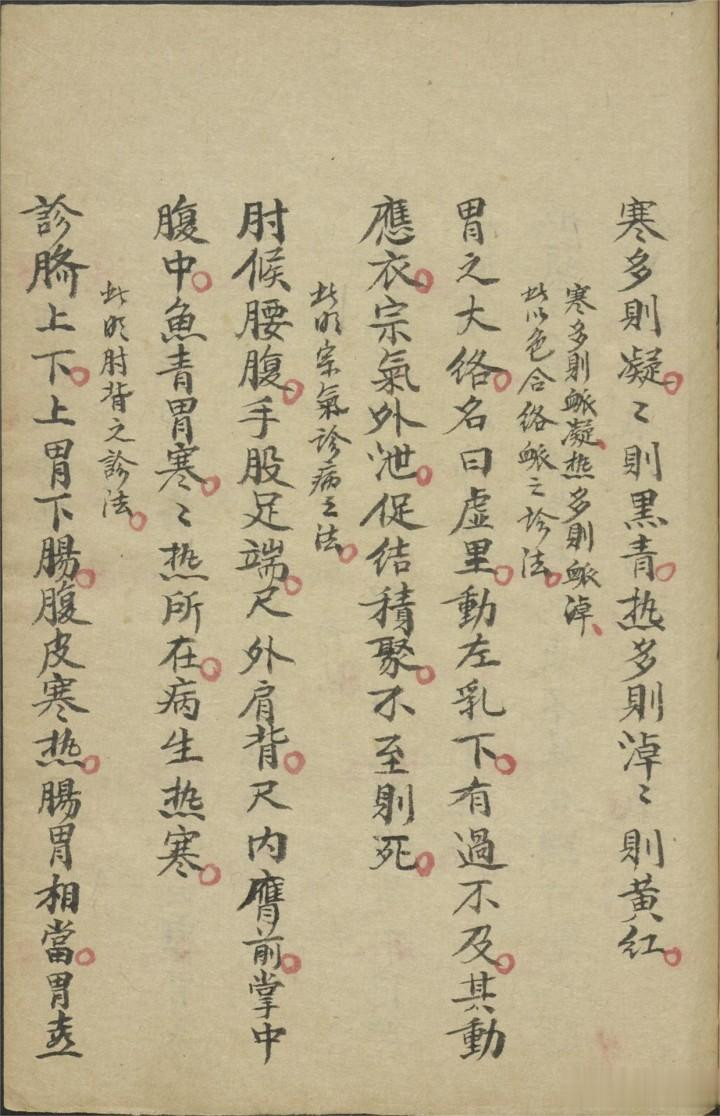 寒多則凝。〻則黑青。热多則淖〻則黃紅。
寒多則脈凝、热多則脈淖、
此以色合絡脈之診法。
胃之大絡。名曰虛里。動左乳下。有過不及。其動
應衣。宗氣外泄。促結積聚。不至則死。
此明宗氣診病之法。
肘候腰腹。手股足端。尺外肩背。尺內膺前。掌中
腹中。魚青胃寒。〻热所在。病生热寒。
此明肘背之診法。
診臍上下。上胃下腸。腹皮寒热。腸胃相當。胃